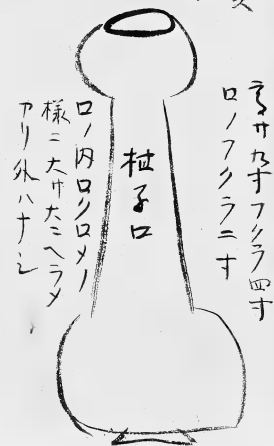 高サ九寸フクラ四寸
口ノフクラ二寸
杓子口
口ノ内ロクロメノ
様ニ大ナタニヘラメ
アリ外ハナシ